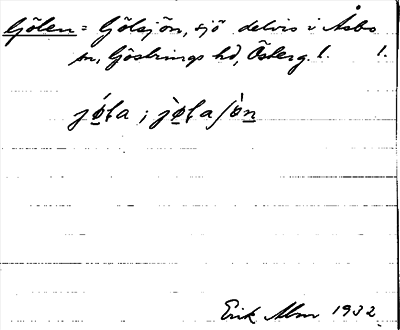 Gölen = Gölsjön, sjö delvis i Åsbo
sn, Göstrings hd, Österg. l. l.
jø̀ta ; jø̀taʃön
Erik Alm 1932